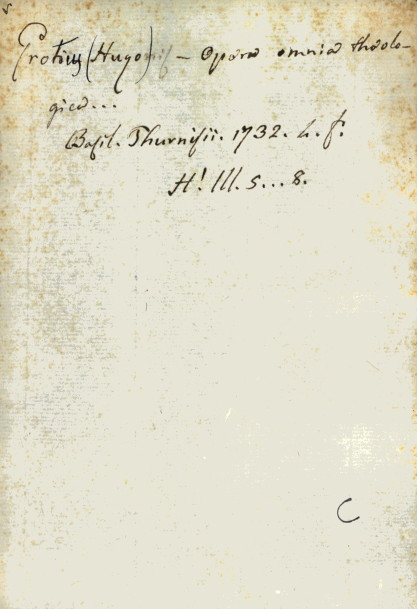 Grotius (Hugo) – Opera omnia theolo-
gica...
Basil. Thurnisii. 1732. h. f.
H! III. 5...8.
C